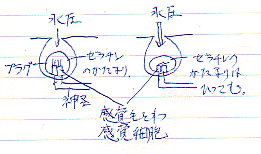 水圧
水圧
プラグ
ゼラチン
のかたまり
神経
ゼラチンの
かたまりは
1つである。
感覚毛をもつ
感覚細胞